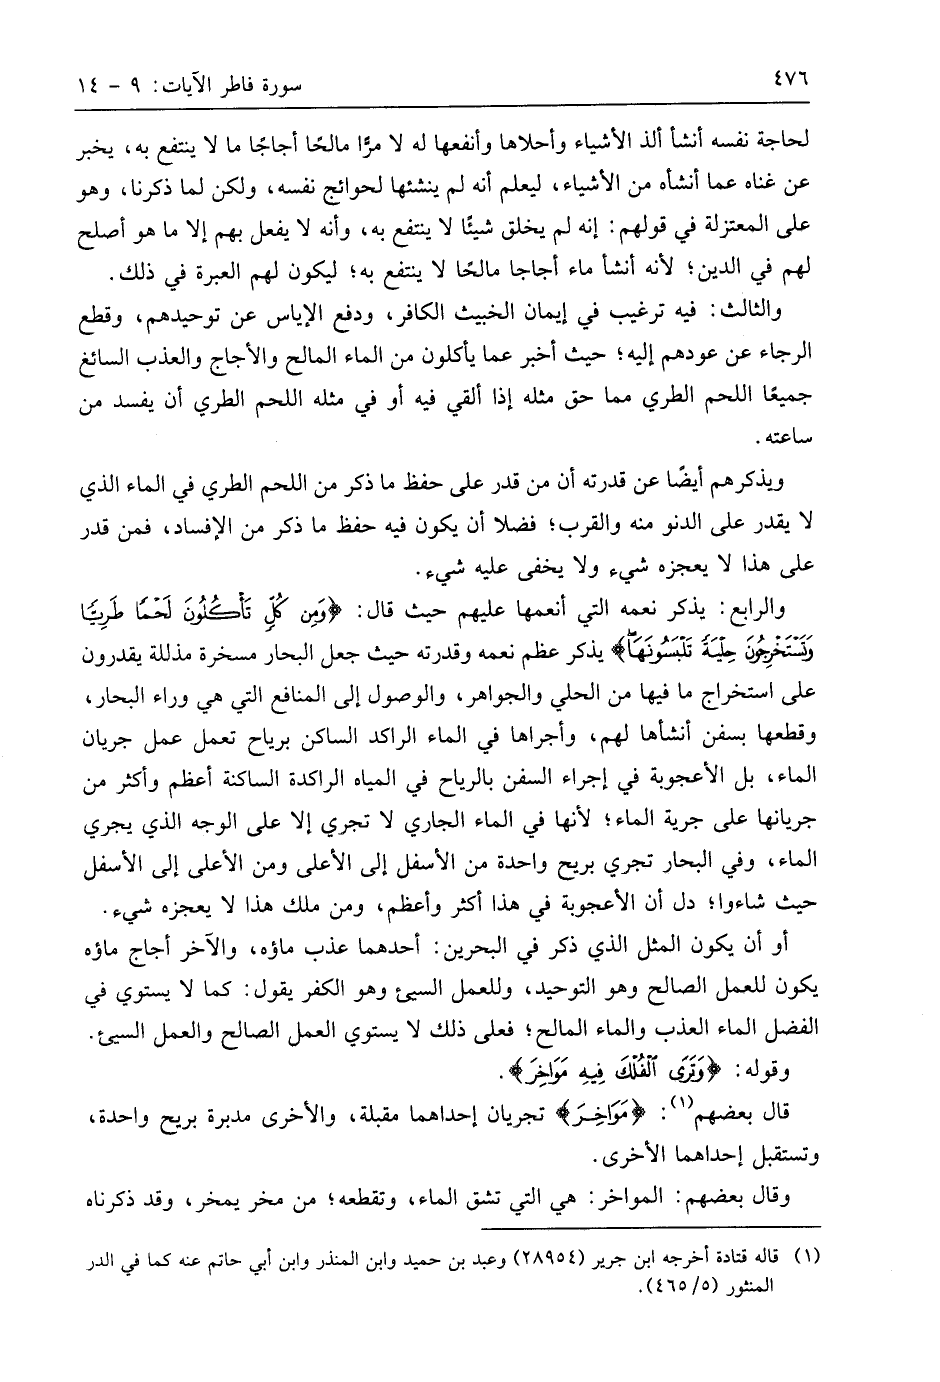 ٤٧٦ سورة فاطر الآيات: ٩ - ١٤
لحاجة نفسه أنشأ ألذ الأشياء وأحلاها وأنفعها له لا مرًّا مالحًا أجاجًا ما لا ينتفع به، يخبر
عن غناه عما أنشأه من الأشياء، ليعلم أنه لم ينشئها لحوائج نفسه، ولكن لما ذكرنا، وهو
على المعتزلة في قولهم: إنه لم يخلق شيئًا لا ينتفع به، وأنه لا يفعل بهم إلا ما هو أصلح
لهم في الدين؛ لأنه أنشأ ماء أجاجا مالحًا لا ينتفع به؛ ليكون لهم العبرة في ذلك.
والثالث: فيه ترغيب في إيمان الخبيث الكافر، ودفع الإياس عن توحيدهم، وقطع
الرجاء عن عودهم إليه؛ حيث أخبر عما يأكلون من الماء المالح والأجاج والعذب السائغ
جميعًا اللحم الطري مما حق مثله إذا ألقي فيه أو في مثله اللحم الطري أن يفسد من
ساعته.
ويذكرهم أيضًا عن قدرته أن من قدر على حفظ ما ذكر من اللحم الطري في الماء الذي
لا يقدر على الدنو منه والقرب؛ فضلا أن يكون فيه حفظ ما ذكر من الإفساد، فمن قدر
على هذا لا يعجزه شيء ولا يخفى عليه شيء.
والرابع: يذكر نعمه التي أنعمها عليهم حيث قال: ﴿وَمِن كُلٍّ تَأْكُلُونَ لَحْمًا طَرِيًّا
وَتَسْتَخْرِجُونَ حِلْيَةً تَلْبَسُونَهَا﴾ يذكر عظم نعمه وقدرته حيث جعل البحار مسخرة مذللة يقدرون
على استخراج ما فيها من الحلي والجواهر، والوصول إلى المنافع التي هي وراء البحار،
وقطعها بسفن أنشأها لهم، وأجراها في الماء الراكد الساكن برياح تعمل عمل جريان
الماء، بل الأعجوبة في إجراء السفن بالرياح في المياه الراكدة الساكنة أعظم وأكثر من
جريانها على جرية الماء؛ لأنها في الماء الجاري لا تجري إلا على الوجه الذي يجري
الماء، وفي البحار تجري بريح واحدة من الأسفل إلى الأعلى ومن الأعلى إلى الأسفل
حيث شاءوا؛ دل أن الأعجوبة في هذا أكثر وأعظم، ومن ملك هذا لا يعجزه شيء.
أو أن يكون المثل الذي ذكر في البحرين: أحدهما عذب ماؤه، والآخر أجاج ماؤه
يكون للعمل الصالح وهو التوحيد، وللعمل السيئ وهو الكفر يقول: كما لا يستوي في
الفضل الماء العذب والماء المالح؛ فعلى ذلك لا يستوي العمل الصالح والعمل السيئ.
وقوله: ﴿وَتَرَى ٱلْفُلْكَ فِيهِ مَوَاخِرَ﴾.
قال بعضهم(١): ﴿مَوَاخِرَ﴾ تجريان إحداهما مقبلة، والأخرى مدبرة بريح واحدة،
وتستقبل إحداهما الأخرى.
وقال بعضهم: المواخر: هي التي تشق الماء، وتقطعه؛ من مخر يمخر، وقد ذكرناه
(١) قاله قتادة أخرجه ابن جرير (٢٨٩٥٤) وعبد بن حميد وابن المنذر وابن أبي حاتم عنه كما في الدر
المنثور (٤٦٥/٥).